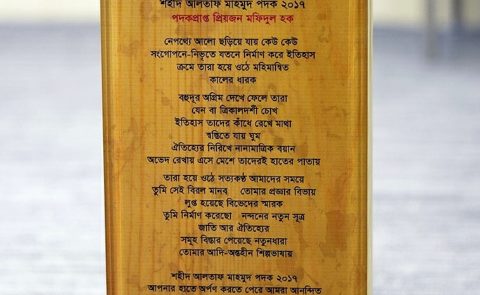 শহীদ আলতাফ মাহমুদ পদক ২০১৭
পদকপ্রাপ্ত প্রিয়জন মফিদুল হক
নেপথ্যে আলো ছড়িয়ে যায় কেউ কেউ
সংগোপনে-নিভৃতে যতনে নির্মাণ করে ইতিহাস
ক্রমে তারা হয়ে ওঠে মহিমান্বিত
কালের ধারক
বহুদূর অগ্রিম দেখে ফেলে তারা
যেন বা ত্রিকালদর্শী চোখ
ইতিহাস তাদের কাঁধে রেখে মাথা
স্বস্তিতে যায় ঘুম
ঐতিহ্যের নিরিখে নানামাত্রিক বয়ান
অভেদ রেখায় এসে মেশে তাদেরই হাতের পাতায়
তারা হয়ে ওঠে সত্যকণ্ঠ আমাদের সময়ে
তুমি সেই বিরল মানব তোমার প্রজ্ঞার বিভায়
লুপ্ত হয়েছে বিভেদের স্মারক
তুমি নির্মাণ করেছো নন্দনের নতুন সূত্র
জাতি আর ঐতিহ্যের
সমূহ বিস্তার পেয়েছে নতুনধারা
তোমার আদি-অন্তহীন শিল্পভাষায়
শহীদ আলতাফ মাহমুদ পদক ২০১৭
আপনার হাতে অর্পণ করতে পেরে আমরা আনন্দিত